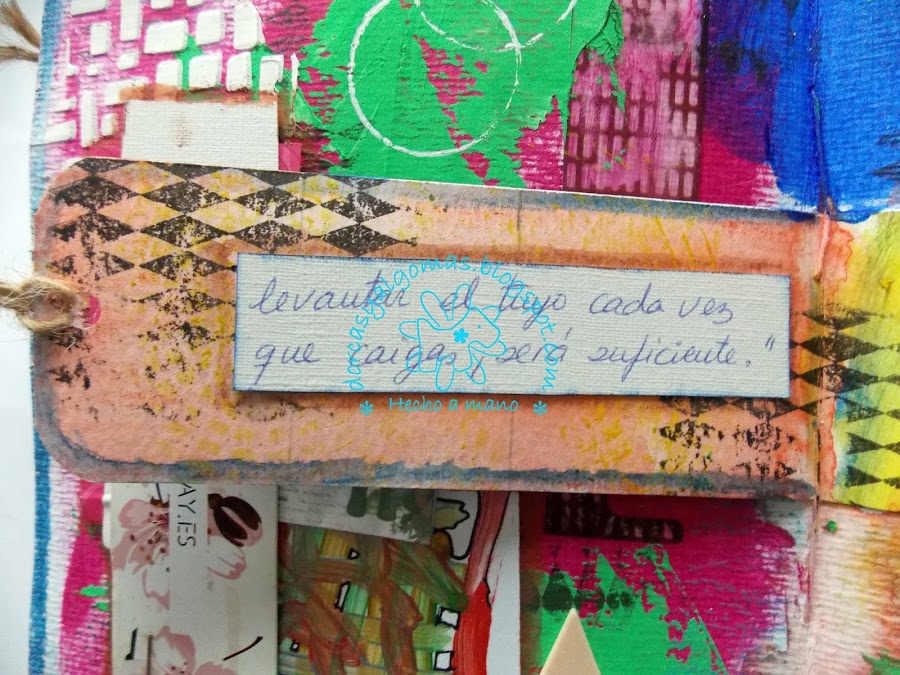 levantar el tuyo cada vez
que caigas, será suficiente."
dorcasyalgomas.blogspot.com
* Hecho a mano *
AY.ES